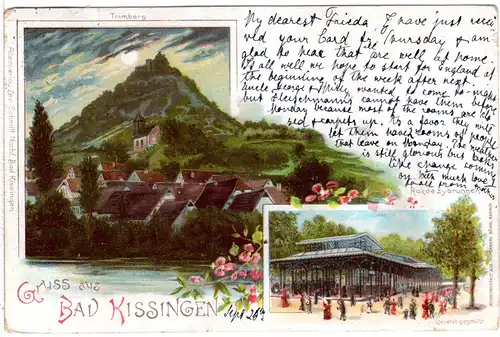 Trimberg
My dearest Frieda, I have just recei
ved your Card of Thursday & am
glad to hear that are all well at home.
If all well we hope to start for England at
the beginning of the week after next.
Uncle George & Milly wanted to come to-night
but Fleischmanns cannot have them before
Monday because most of the rooms are
sed & carpets up. As a favor they will
let them have rooms of people
that leave on Monday. The weather
is still glorious but looks
like change coming
on. With much love
to all from
Rakoczybrunnen
Gruss aus
Bad Kissingen
Sept 26th